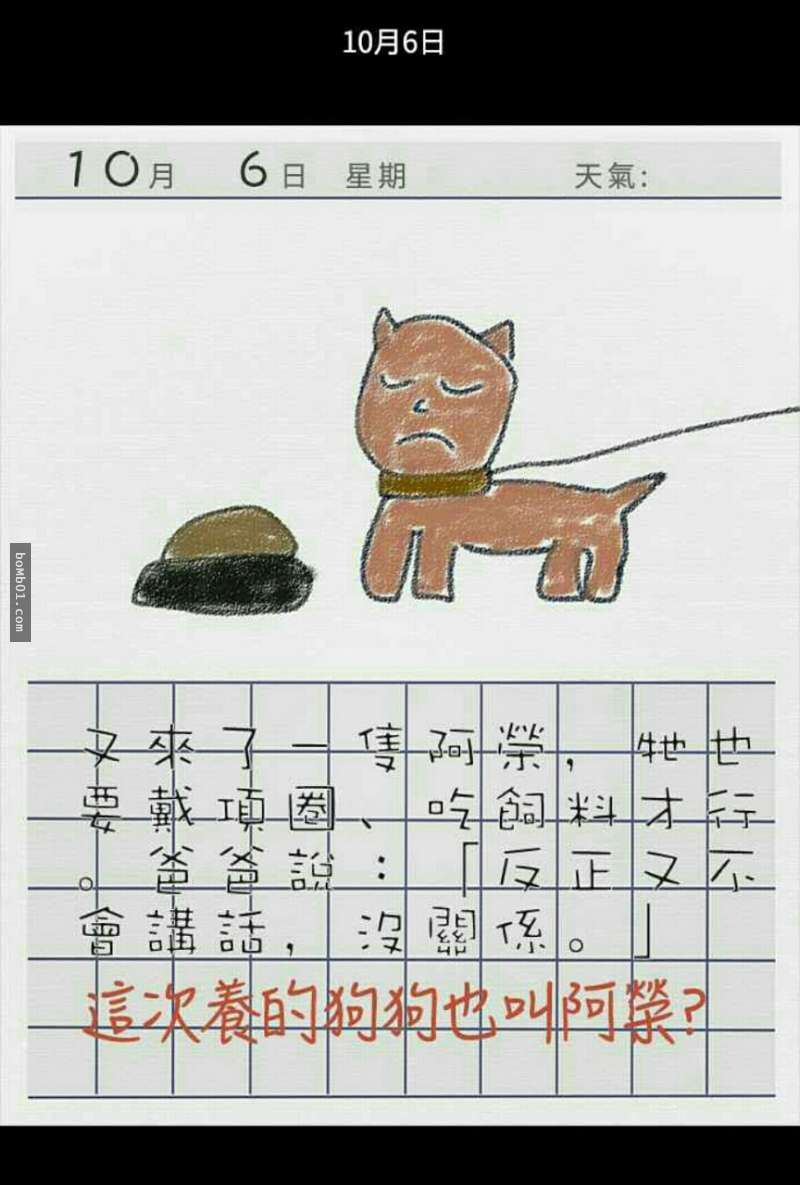 10月6日
10月 6日 星期 天氣:
boMb01.com
又來了一隻阿榮，牠也
要戴項圈、吃飼料才行
。爸爸說：「反正又不
會講話，沒關係。」
這次養的狗狗也叫阿榮?